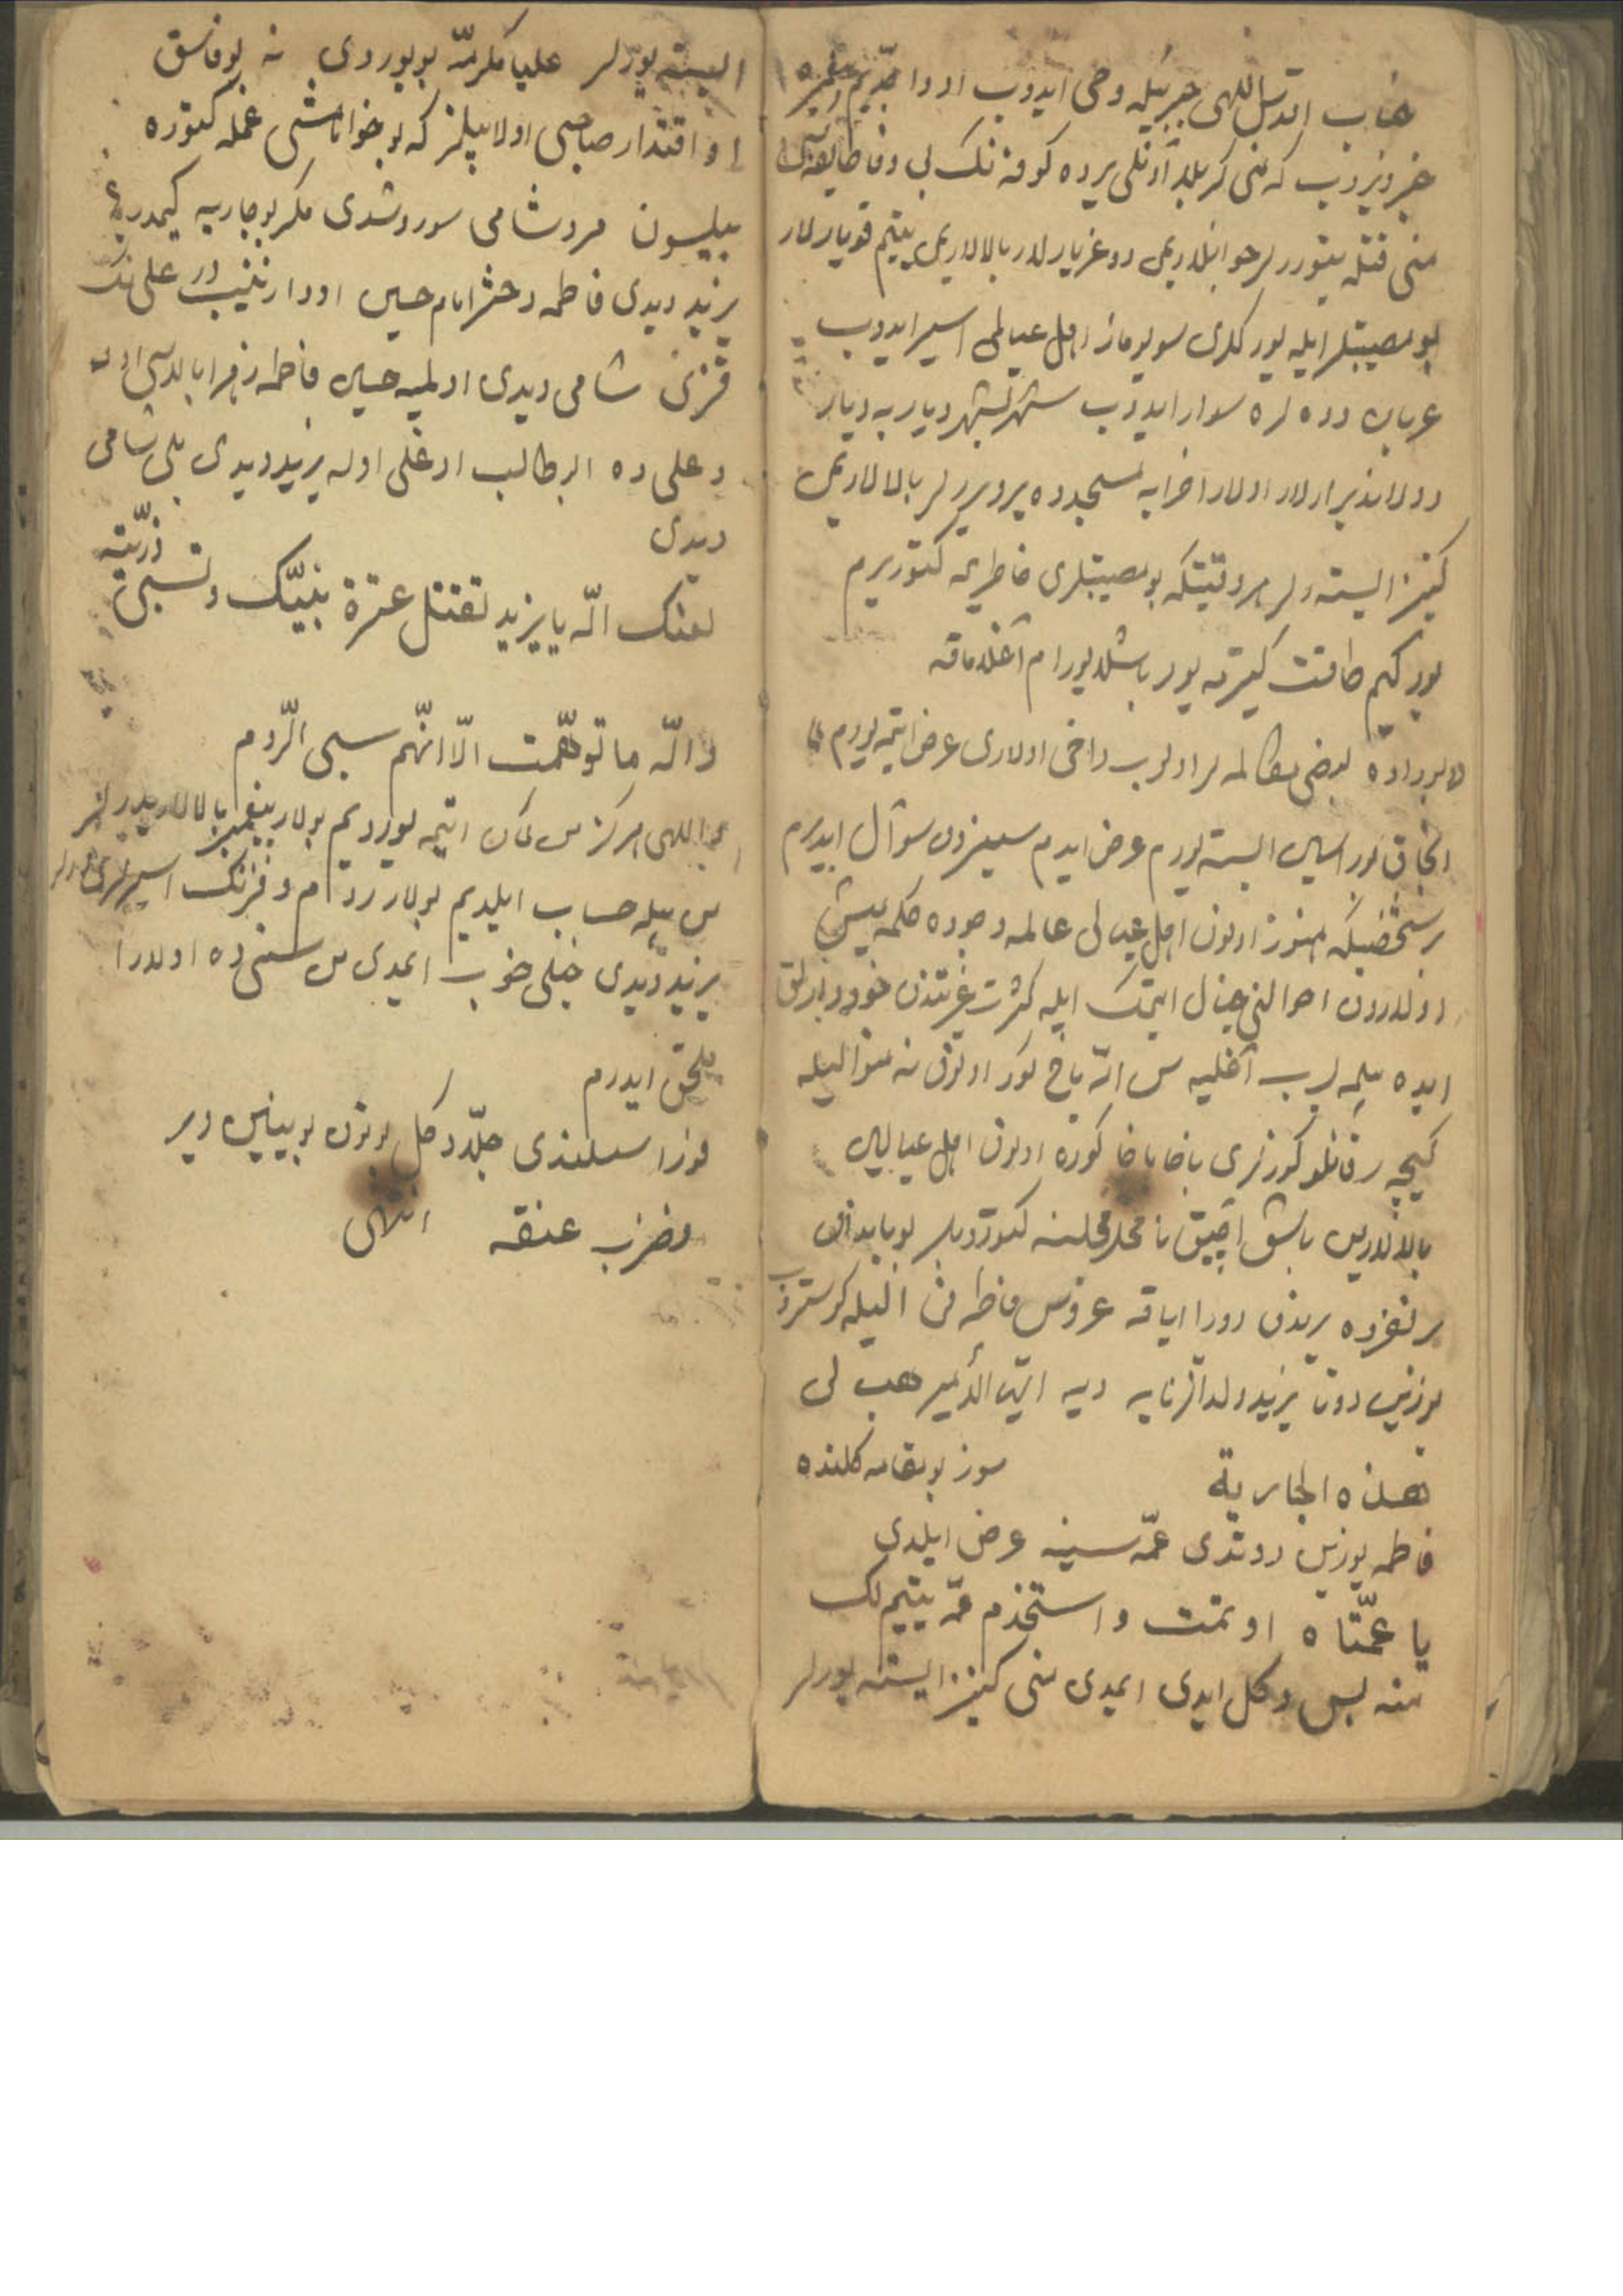 جناب اقدس اللهی جبرئیله وحی ایدوب اودا جدیم پیغمبره
خبر ویروب که منی کربلا آدنلی یرده کوفه نک بی وفا طایفه سی
منی قتله یتوررلر جوانلاریمی دوغریارلار بالالاریمی یتیم قویارلار
بو مصیبتلر ایله یورکلری سویوماز اهل عیالمی اسیر ایدوب
عریان دوه لره سوار ایدوب شهر بشهر دیار به دیار
دولاندیرارلار اولارا خرابه مسجدده یر ویررلر بالالاریمی
کنیز ایسته رلر هر وقتیکه بو مصیبتلری خاطریمه کتوریرم
یورکیم طاقت کیترمه یور باشلایورام آغلاماقه
بوراده بعضی مکالمه لر اولوب داخی اولاری عرض ایتمه یورم
انجاق بوراسین ایسته یورم عرض ایدم سیزدن سوآل ایدیرم
بر شخصیکه هنوز اونون اهل عیالی عالمه وجوده کلمه میش
اولاردون احوالنی خیال ایتمک ایله کثرت غیرتدن خوددارلق
ایده بیلمه یوب آغلیه سن الله باخ کور اونون نه منوالیله
کیچه ر قانلو کوزلری باخا باخا کوره اونون اهل عیالین
بالالارین باشی آچیق نامحرم مجلسنه کتوردیلر بو یاندان
بر نفرده یریندن دورا ایاقه عروس فاطمه نی الیله کوستروب
یوزین دوتا یزید ولدالزنایه دیه ایها الأمیر هب لی
هذه الجاریة سوز بو مقامه کلنده
فاطمه یوزین دوتدی عمّه سینه عرض ایلدی
یا عمّتاه اوتمت و استخذم عمّه یتیم لک
منه بس دکل ایدی ایمدی منی کنیز ایسته یورلر
ایسته یورلر علیا مکرمّه بویوردی نه بو فاسق
او اقتدار صاحبی اولا بیلمز که بو خواناشنی عمله کتوره
بیلسون مرد شامی سوروشدی مکر بو جاریه کیمدر
یزید دیدی فاطمه دختر امام حسین اودا زینب در علی نک
قزی شامی دیدی اولمیه حسین فاطمه زهرا بالاسی اوله
و علی ده ابوطالب اوغلی اوله یزید دیدی بلی شامی
دیدی
لعنک الله یا یزید تقتل عترة نبیّک وتسبی ذرّیته
والله ما توهّمت الّا انّهم سبی الرّوم
والله هرکز من کمان ایتمه یوردیم بولار پیغمبر بالالاریدرلر
من بیله حساب ایلدیم بولار روم و فرنک اسیرلری درلر
یزید دیدی خیلی خوب ایمدی من سنی ده اولارا
ملحق ایدرم
فوزا سسلندی جلّاد کل بونون بوینین ویر
فضرب عنقه انتهی